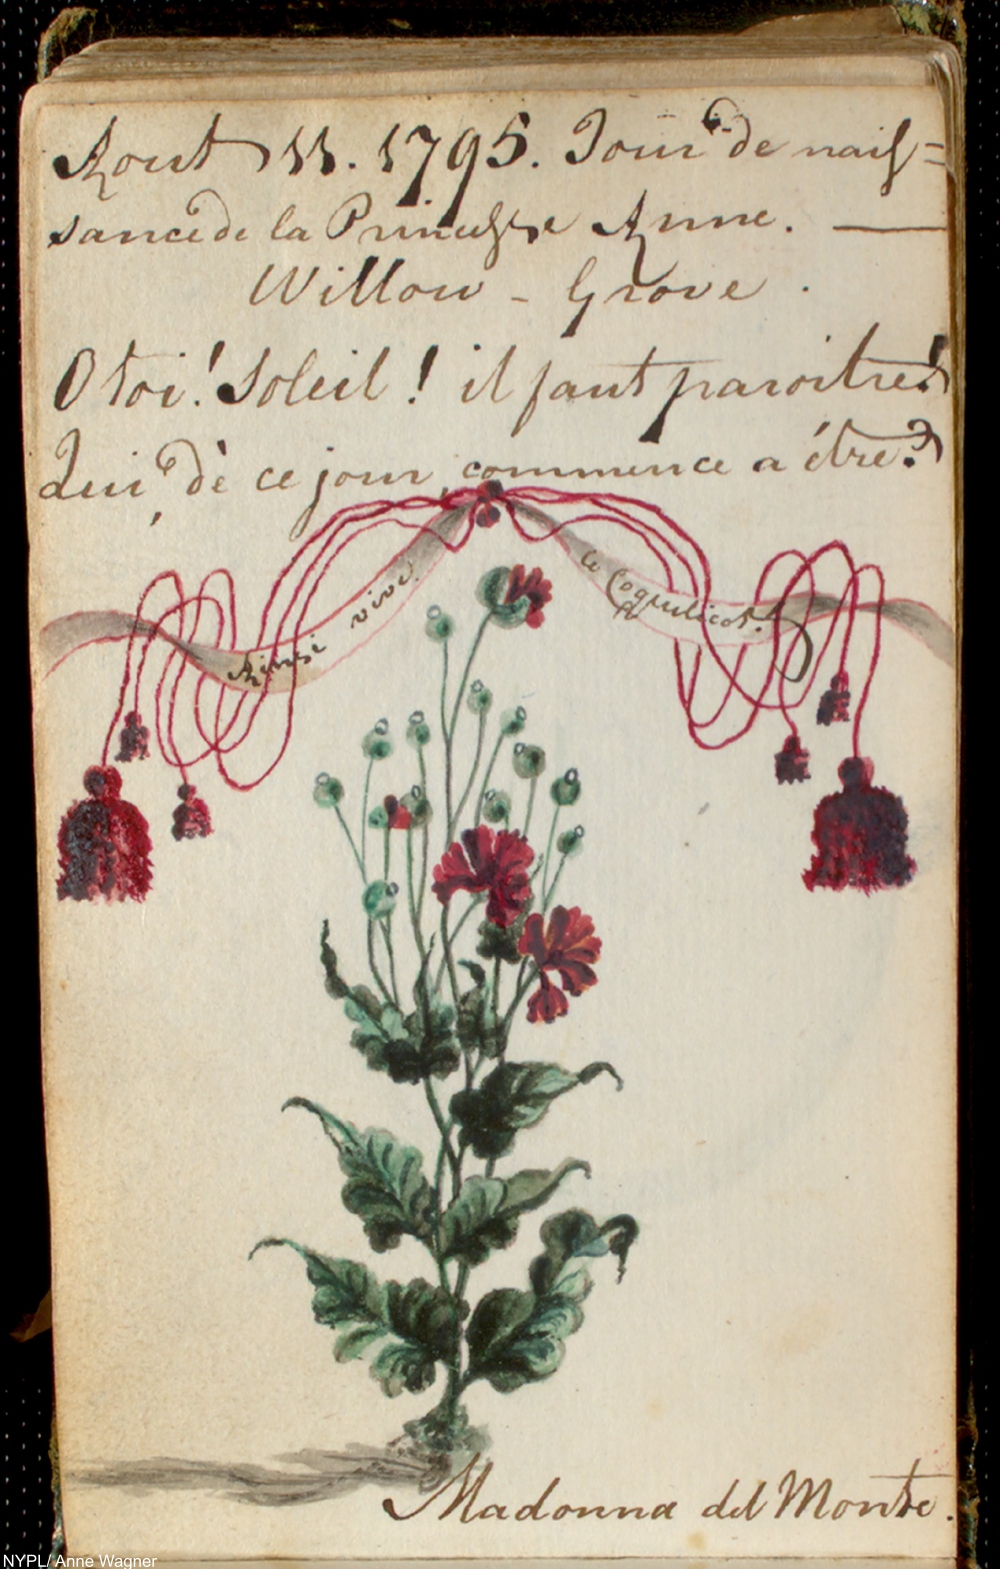 Aout 11. 1795. Jour de naiſ=
sance de la Princeſse Anne. —
Willow - Grove.
O toi! Soleil! il faut paroitre!
Qui, dè ce jour, commence a étre?
Ainsi vive! le Coquelicot!
Madonna del Monte.
NYPL/ Anne Wagner